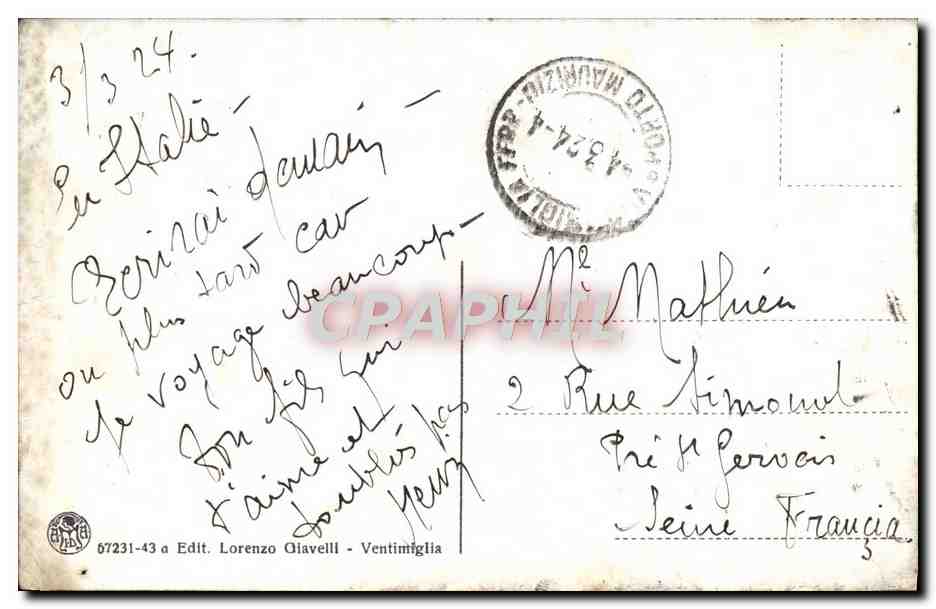 3/3 24.
En Italie –
Ecrirai demain –
ou plus tard car
je voyage beaucoup –
Ton fils qui
t'aime et
t'oublis pas
Henri
Mme Mathieu
2 Rue Simonot
Pré St Gervais
Seine Francia
PORTO MAURIZIO
-4.3.24-4
CPAPHIL
67231-43 a Edit. Lorenzo Giavelli - Ventimiglia